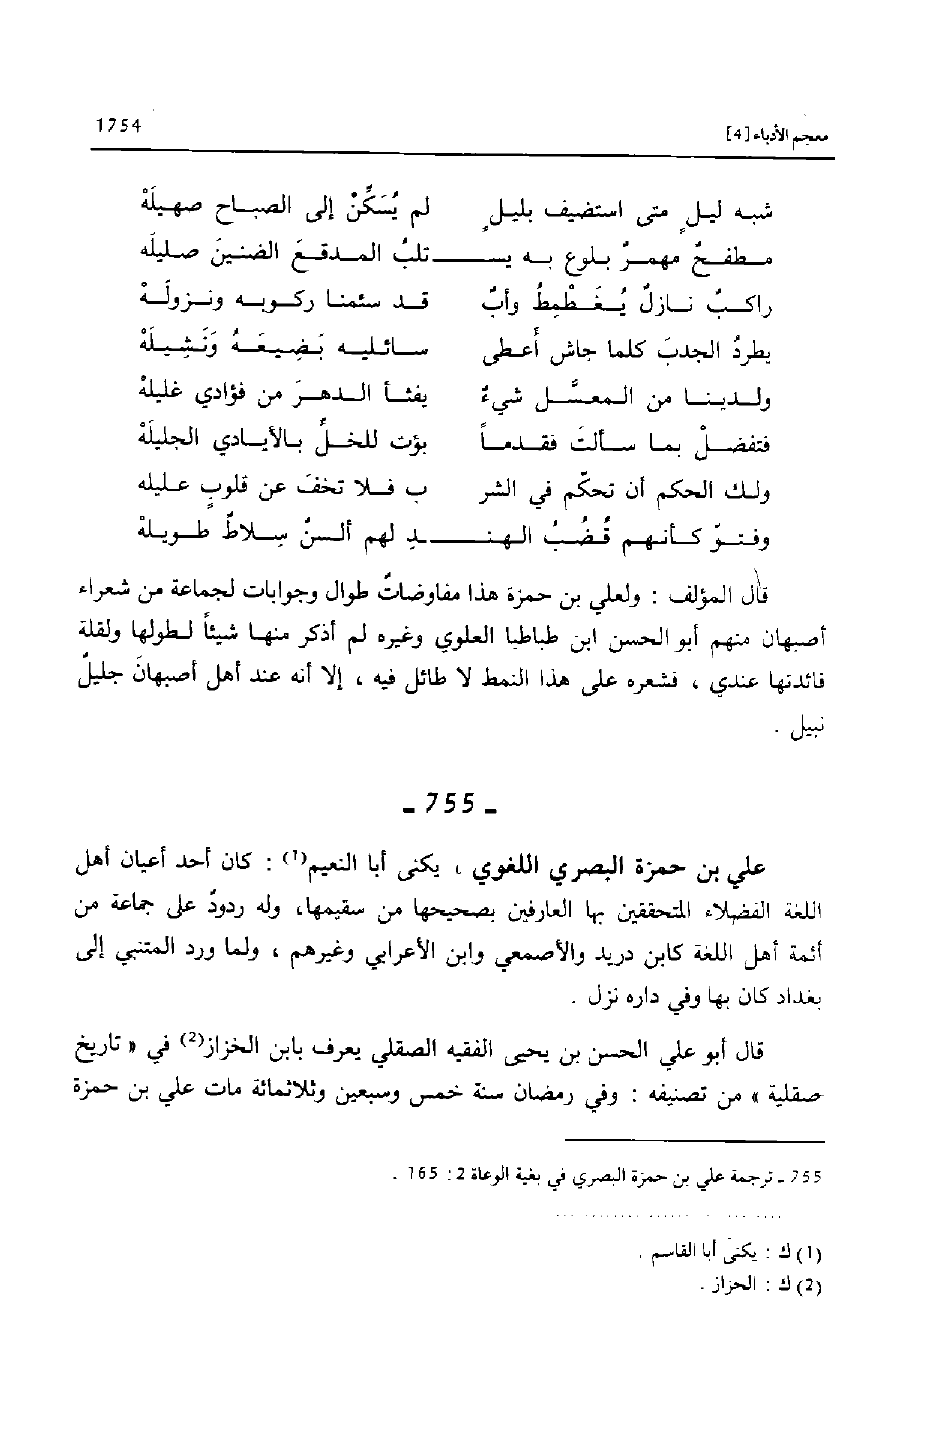 معجم الأدباء [4] 1754
شبه ليلٍ متى استضيف بليلٍ لم يُسَكِّنْ إلى الصباح صهيلَهْ
مطفحٌ مهمرٌ بلوع به يــ ــتلبُ المدقعَ الضنينَ صليلَه
راكبٌ نازلٌ يُغَطْمِطُ وأبٌ قد سئمنا ركوبه ونزولَهْ
يطردُ الجدبَ كلما جاش أعطى سائليه نَضِيعَهُ وَنَشِيلَهْ
ولدينا من المعسَّل شيءٌ يفثأ الدهرَ من فؤادي غليلهْ
فتفضلْ بما سألتَ فقدماً بؤت للخلِّ بالأيادي الجليلَهْ
ولك الحكم أن تحكّم في الشر ب فلا تخفَ عن قلوبٍ عليله
وفتوّ كأنهم قُضُبُ الهنـ ـد لهم ألسنٌ سلاطٌ طويلهْ
قال المؤلف : ولعلي بن حمزة هذا مفاوضاتٌ طوال وجوابات لجماعة من شعراء
أصبهان منهم أبو الحسن ابن طباطبا العلوي وغيره لم أذكر منها شيئاً لطولها ولقلة
فائدتها عندي ، فشعره على هذا النمط لا طائل فيه ، إلا أنه عند أهل أصبهانَ جليلٌ
نبيل .
- 755 -
علي بن حمزة البصري اللغوي ، يكنى أبا النعيم(1) : كان أحد أعيان أهل
اللغة الفضلاء المتحققين بها العارفين بصحيحها من سقيمها، وله ردودٌ على جماعة من
أئمة أهل اللغة كابن دريد والأصمعي وابن الأعرابي وغيرهم ، ولما ورد المتنبي إلى
بغداد كان بها وفي داره نزل .
قال أبو علي الحسن بن يحيى الفقيه الصقلي يعرف بابن الخزاز(2) في « تاريخ
صقلية » من تصنيفه : وفي رمضان سنة خمس وسبعين وثلاثمائة مات علي بن حمزة
755 - ترجمة علي بن حمزة البصري في بغية الوعاة 2 : 165 .
(1) ك : يكنى أبا القاسم .
(2) ك : الحزاز .